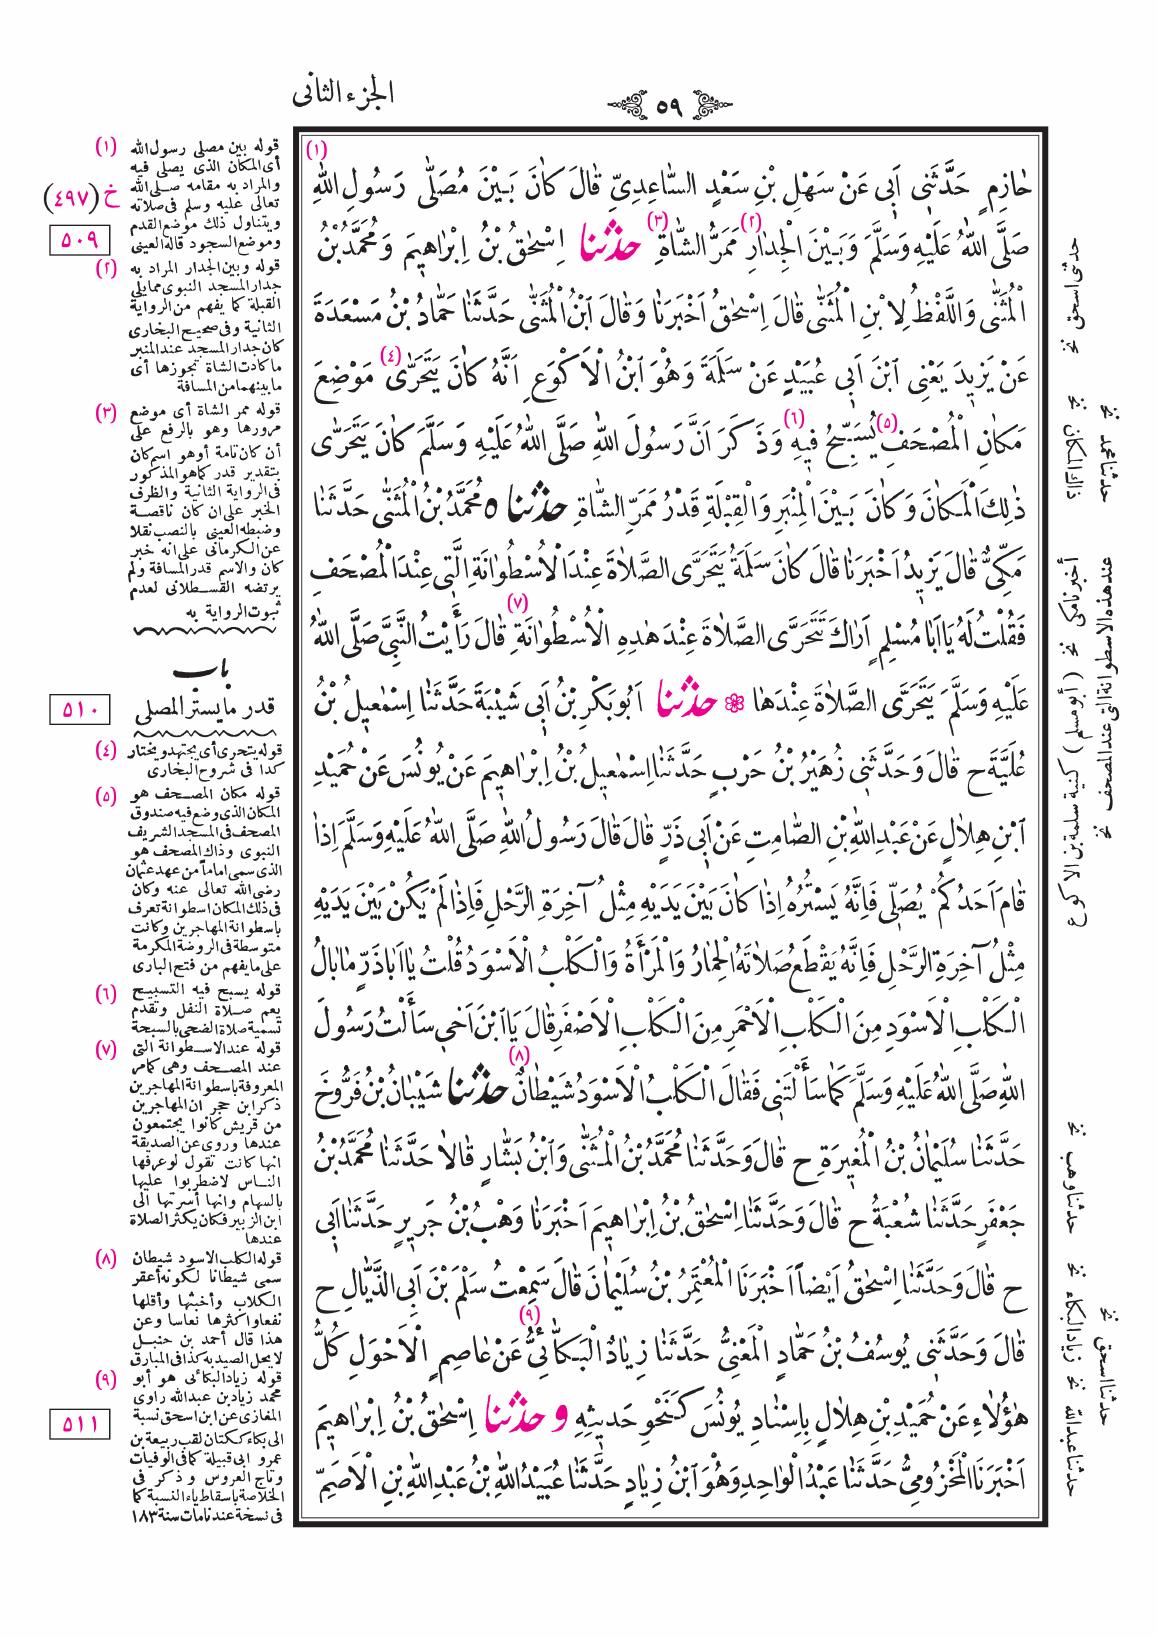 ٥٩
الجزء الثانى
حَازِمٍ حَدَّثَنِى اَبِى عَنْ سَهْلِ بْنِ سَعْدٍ السَّاعِدِىِّ قَالَ كَانَ بَيْنَ مُصَلَّى رَسُولِ اللهِ (١)
صَلَّى اللهُ عَلَيْهِ وَسَلَّمَ وَبَيْنَ الْجِدَارِ (٢) مَمَرُّ الشَّاةِ (٣) حدثنا اِسْحٰقُ بْنُ اِبْرٰاهِيمَ وَمُحَمَّدُ بْنُ
الْمُثَنّٰى وَاللَّفْظُ لِابْنِ الْمُثَنّٰى قَالَ اِسْحٰقُ اَخْبَرَنَا وَقَالَ ابْنُ الْمُثَنّٰى حَدَّثَنَا حَمَّادُ بْنُ مَسْعَدَةَ
عَنْ يَزِيدَ يَعْنِى ابْنَ اَبِى عُبَيْدٍ عَنْ سَلَمَةَ وَهُوَ ابْنُ الْاَكْوَعِ اَنَّهُ كَانَ يَتَحَرّٰى (٤) مَوْضِعَ
مَكَانِ الْمُصْحَفِ (٥) يُسَبِّحُ فِيهِ (٦) وَذَكَرَ اَنَّ رَسُولَ اللهِ صَلَّى اللهُ عَلَيْهِ وَسَلَّمَ كَانَ يَتَحَرّٰى
ذٰلِكَ الْمَكَانَ وَكَانَ بَيْنَ الْمِنْبَرِ وَالْقِبْلَةِ قَدْرُ مَمَرِّ الشَّاةِ حدثنا ٥ مُحَمَّدُ بْنُ الْمُثَنّٰى حَدَّثَنَا
مَكِّىٌّ قَالَ يَزِيدُ اَخْبَرَنَا قَالَ كَانَ سَلَمَةُ يَتَحَرَّى الصَّلَاةَ عِنْدَ الْاُسْطُوَانَةِ الَّتِى عِنْدَ الْمُصْحَفِ
فَقُلْتُ لَهُ يَا اَبَا مُسْلِمٍ اَرَاكَ تَتَحَرَّى الصَّلَاةَ عِنْدَ هٰذِهِ الْاُسْطُوَانَةِ (٧) قَالَ رَأَيْتُ النَّبِىَّ صَلَّى اللهُ
عَلَيْهِ وَسَلَّمَ يَتَحَرَّى الصَّلَاةَ عِنْدَهَا ❀ حدثنا اَبُو بَكْرِ بْنُ اَبِى شَيْبَةَ حَدَّثَنَا اِسْمٰعِيلُ بْنُ
عُلَيَّةَ ح قَالَ وَحَدَّثَنِى زُهَيْرُ بْنُ حَرْبٍ حَدَّثَنَا اِسْمٰعِيلُ بْنُ اِبْرٰاهِيمَ عَنْ يُونُسَ عَنْ حُمَيْدِ
ابْنِ هِلَالٍ عَنْ عَبْدِ اللهِ بْنِ الصَّامِتِ عَنْ اَبِى ذَرٍّ قَالَ قَالَ رَسُولُ اللهِ صَلَّى اللهُ عَلَيْهِ وَسَلَّمَ اِذَا
قَامَ اَحَدُكُمْ يُصَلِّى فَاِنَّهُ يَسْتُرُهُ اِذَا كَانَ بَيْنَ يَدَيْهِ مِثْلُ آخِرَةِ الرَّحْلِ فَاِذَا لَمْ يَكُنْ بَيْنَ يَدَيْهِ
مِثْلُ آخِرَةِ الرَّحْلِ فَاِنَّهُ يَقْطَعُ صَلَاتَهُ الْحِمَارُ وَالْمَرْأَةُ وَالْكَلْبُ الْاَسْوَدُ قُلْتُ يَا اَبَا ذَرٍّ مَا بَالُ
الْكَلْبِ الْاَسْوَدِ مِنَ الْكَلْبِ الْاَحْمَرِ مِنَ الْكَلْبِ الْاَصْفَرِ قَالَ يَا ابْنَ اَخِى سَأَلْتُ رَسُولَ
اللهِ صَلَّى اللهُ عَلَيْهِ وَسَلَّمَ كَمَا سَأَلْتَنِى فَقَالَ الْكَلْبُ الْاَسْوَدُ شَيْطَانٌ (٨) حدثنا شَيْبَانُ بْنُ فَرُّوخَ
حَدَّثَنَا سُلَيْمَانُ بْنُ الْمُغِيرَةِ ح قَالَ وَحَدَّثَنَا مُحَمَّدُ بْنُ الْمُثَنّٰى وَابْنُ بَشَّارٍ قَالَا حَدَّثَنَا مُحَمَّدُ بْنُ
جَعْفَرٍ حَدَّثَنَا شُعْبَةُ ح قَالَ وَحَدَّثَنَا اِسْحٰقُ بْنُ اِبْرٰاهِيمَ اَخْبَرَنَا وَهْبُ بْنُ جَرِيرٍ حَدَّثَنَا اَبِى
ح قَالَ وَحَدَّثَنَا اِسْحٰقُ اَيْضاً اَخْبَرَنَا الْمُعْتَمِرُ بْنُ سُلَيْمَانَ قَالَ سَمِعْتُ سَلْمَ بْنَ اَبِى الذَّيَّالِ ح
قَالَ وَحَدَّثَنِى يُوسُفُ بْنُ حَمَّادٍ الْمَعْنِىُّ حَدَّثَنَا زِيَادٌ الْبَكَّائِىُّ (٩) عَنْ عَاصِمٍ الْاَحْوَلِ كُلُّ
هٰؤُلَاءِ عَنْ حُمَيْدِ بْنِ هِلَالٍ بِاِسْنَادِ يُونُسَ كَنَحْوِ حَدِيثِهِ وحدثنا اِسْحٰقُ بْنُ اِبْرٰاهِيمَ
اَخْبَرَنَا الْمَخْزُومِىُّ حَدَّثَنَا عَبْدُ الْوَاحِدِ وَهُوَ ابْنُ زِيَادٍ حَدَّثَنَا عُبَيْدُ اللهِ بْنُ عَبْدِ اللهِ بْنِ الْاَصَمِّ
حدثنى اسحق نخ
ذاك المكان نخ
حدثنا محمد نخ
أخبرنا مكى نخ
عند هذه الاسطوانة التى عند المصحف نخ
(أبو مسلم) كنية سلمة بن الاكوع
حدثنا وهب نخ
زياد البكاء نخ
حدثنا اسحق نخ
حدثنا عبد الله نخ
(١) قوله بين مصلى رسول الله
أى المكان الذى يصلى فيه
والمراد به مقامه صلى الله
تعالى عليه وسلم فى صلاته
ويتناول ذلك موضع القدم
وموضع السجود قاله العينى
خ (٤٩٧)
٥٠٩
(٢) قوله وبين الجدار المراد به
جدار المسجد النبوى مما يلى
القبلة كما يفهم من الرواية
الثانية وفى صحيح البخارى
كان جدار المسجد عند المنبر
ما كادت الشاة تجوزها أى
ما بينهما من المسافة
(٣) قوله ممر الشاة أى موضع
مرورها وهو بالرفع على
أن كان تامة أو هو اسم كان
بتقدير قدر كما هو المذكور
فى الرواية الثانية والظرف
الخبر على ان كان ناقصة
وضبطه العينى بالنصب نقلا
عن الكرمانى على انه خبر
كان والاسم قدر المسافة ولم
يرتضه القسطلانى لعدم
ثبوت الرواية به
باب
قدر ما يستر المصلى
٥١٠
(٤) قوله يتحرى أى يجتهد ويختار
كذا فى شروح البخارى
(٥) قوله مكان المصحف هو
المكان الذى وضع فيه صندوق
المصحف فى المسجد الشريف
النبوى وذاك المصحف هو
الذى سمى اماماً من عهد عثمان
رضى الله تعالى عنه وكان
فى ذلك المكان اسطوانة تعرف
باسطوانة المهاجرين وكانت
متوسطة فى الروضة المكرمة
على ما يفهم من فتح البارى
(٦) قوله يسبح فيه التسبيح
يعم صلاة النفل وتقدم
تسمية صلاة الضحى بالسبحة
(٧) قوله عند الاسطوانة التى
عند المصحف وهى كما مر
المعروفة باسطوانة المهاجرين
ذكر ابن حجر ان المهاجرين
من قريش كانوا يجتمعون
عندها وروى عن الصديقة
انها كانت تقول لو عرفها
الناس لاضطربوا عليها
بالسهام وانها أسرتها الى
ابن الزبير فكان يكثر الصلاة
عندها
(٨) قوله الكلب الاسود شيطان
سمى شيطانا لكونه أعقر
الكلاب وأخبثها وأقلها
نفعا واكثرها نعاسا وعن
هذا قال أحمد بن حنبل
لا يحل الصيد به كذا فى المبارق
(٩) قوله زياد البكائى هو أبو
محمد زياد بن عبد الله راوى
المغازى عن ابن اسحق نسبة
٥١١
الى بكاء ككتان لقب ربيعة بن
عمرو ابى قبيلة كما فى الوفيات
وتاج العروس وذكر فى
الخلاصة باسقاط ياء النسبة كما
فى نسخة عندنا مات سنة ١٨٣